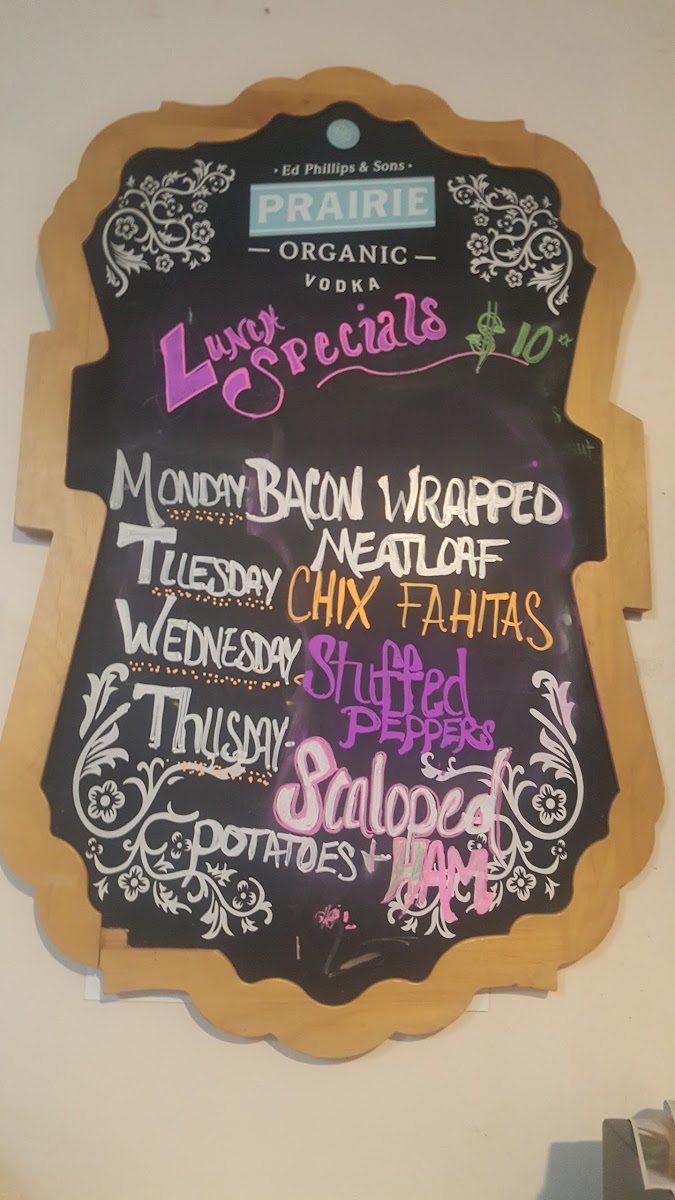 · Ed Phillips & Sons ·
PRAIRIE
— ORGANIC —
VODKA
Lunch Specials $10
MONDAY BACON WRAPPED
MEATLOAF
TUESDAY CHIX FAHITAS
WEDNESDAY Stuffed
PEPPERS
THUSDAY- Scaloped
POTATOES + HAM